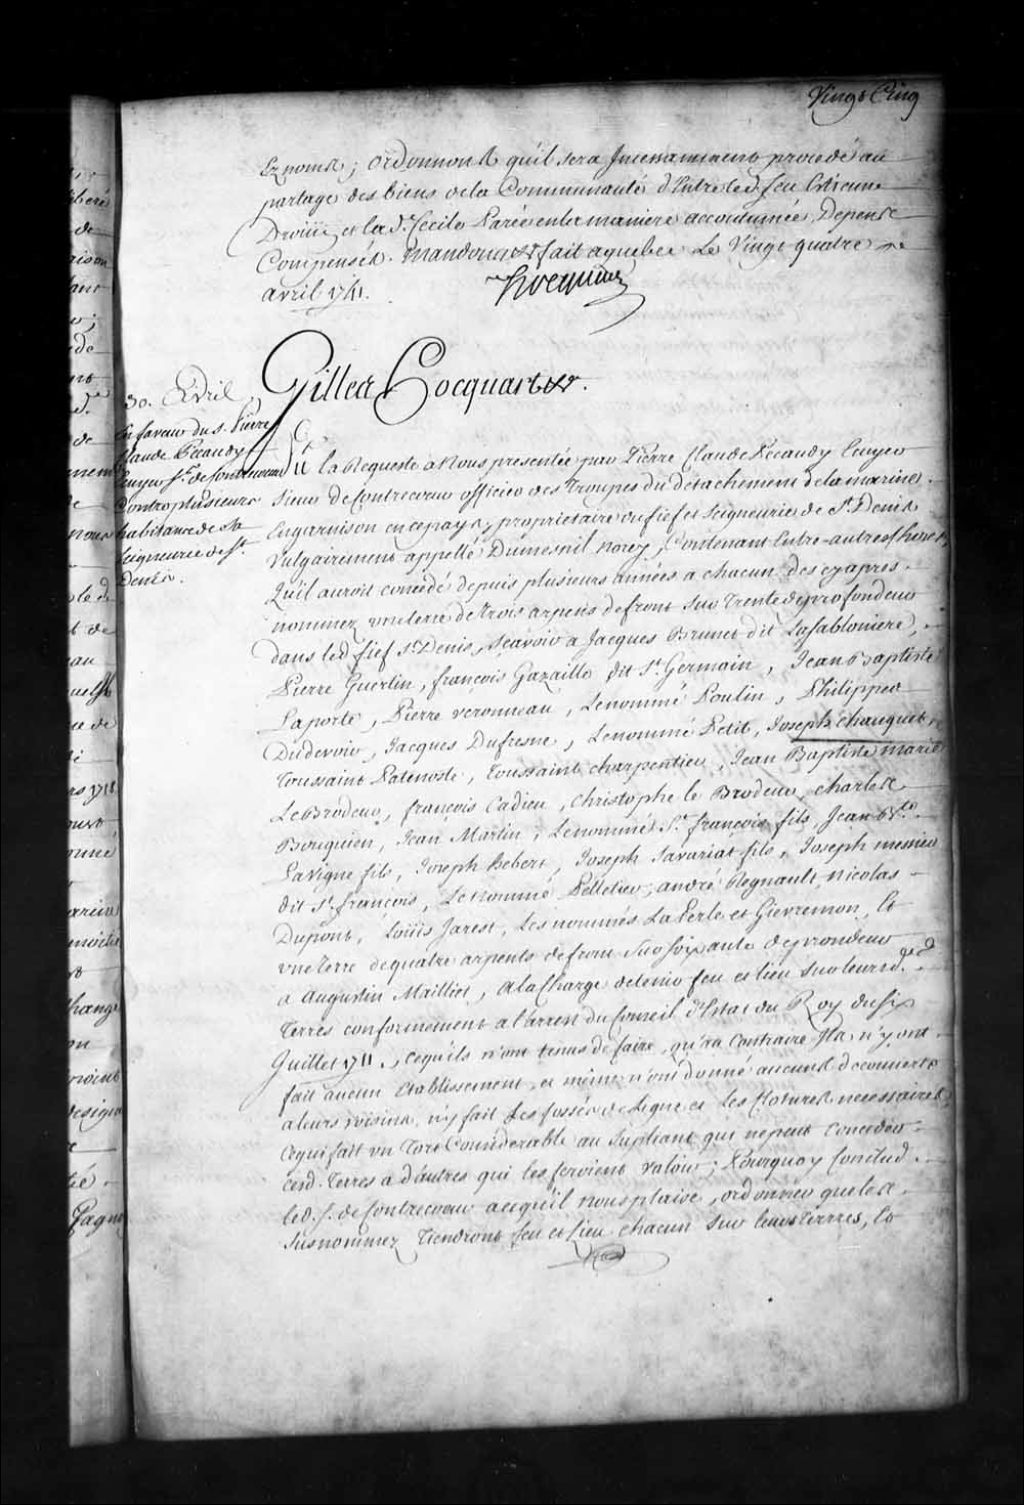 Vingt Cinq
Es noms; ordonnons qu'il sera Incessamment procedé au
partage des biens de la Communauté d'Entre led. feu Estienne
Droüi et lad. Cecile Parée en la maniere accoutumée, Depens
Compensés. Mandons &a fait a quebec Le Vingt quatre
avril 1741.
Hocquart
Gilles Hocquart &a.
30. Avril
En faveur du s. Pierre
Claude Pécaudy
Ecuyer Sr. de Contrecoeur
Contre plusieurs
habitans de la
Seigneurie de St.
Denis.
Vû la Requeste a Nous presentée par Pierre Claude Pécaudy Ecuyer
Sieur de Contrecoeur officier des troupes du détachement de la marine
En garnison en ce pays, proprietaire du fief et Seigneurie de St. Denis
Vulgairement appellé Dumesnil Norey, Contenant Entre-autres choses
Qu'il auroit concédé depuis plusieurs années a chacun des cy apres
nommez une terre de trois arpens de front sur trente de profondeur
dans led fief St. Denis, Scavoir a Jacques Brunet dit Lasabloniere,
Pierre Guertin, françois Gazaille dit St. Germain, Jean Baptiste
Laporte, Pierre Veronneau, Le nommé Poulin, Philippes
Dudevoir, Jacques Dufresne, Le nommé Petit, Joseph chauquet,
Toussaint Patenoste, Toussaint charpentier, Jean Baptiste marie
Le Brodeur, françois Cadieu, Christophe le Brodeur, charles
Bouguien, Jean Martin, Le nommé St. françois fils, Jean Bte.
Lavigne fils, Joseph hebert, Joseph Savariat fils, Joseph mesnier
dit St. françois, Le nommé Pelletier, andré Regnault, Nicolas
Dupont, Loüis Jarest, Les nommés La Perle et Gievremon, Et
une terre de quatre arpents de front sur soixante de profondeur
a Augustin Mailliet, a la Charge de tenir feu et lieu sur leursd.
Terres conformement a l'arrest du Conseil d'Estat du Roy du six
Juillet 1711., ce qu'ils n'ont tenus de faire, qu'au Contraire Ils n'y ont
fait aucun Etablissement, et même n'ont donné aucuns decouverts
a leurs voisins, n'y fait Les fossés de Ligne et les Clotures necessaires,
ce qui fait un Tort Considerable au Supliant qui ne peut Conceder
cesd. Terres a d'autres qui les feroient valoir; Pourquoy Conclud
led. s. de Contrecoeur a ce qu'il nous plaise, ordonner que les
susnommez Tiendront feu et Lieu chacun sur leurs terres, Et